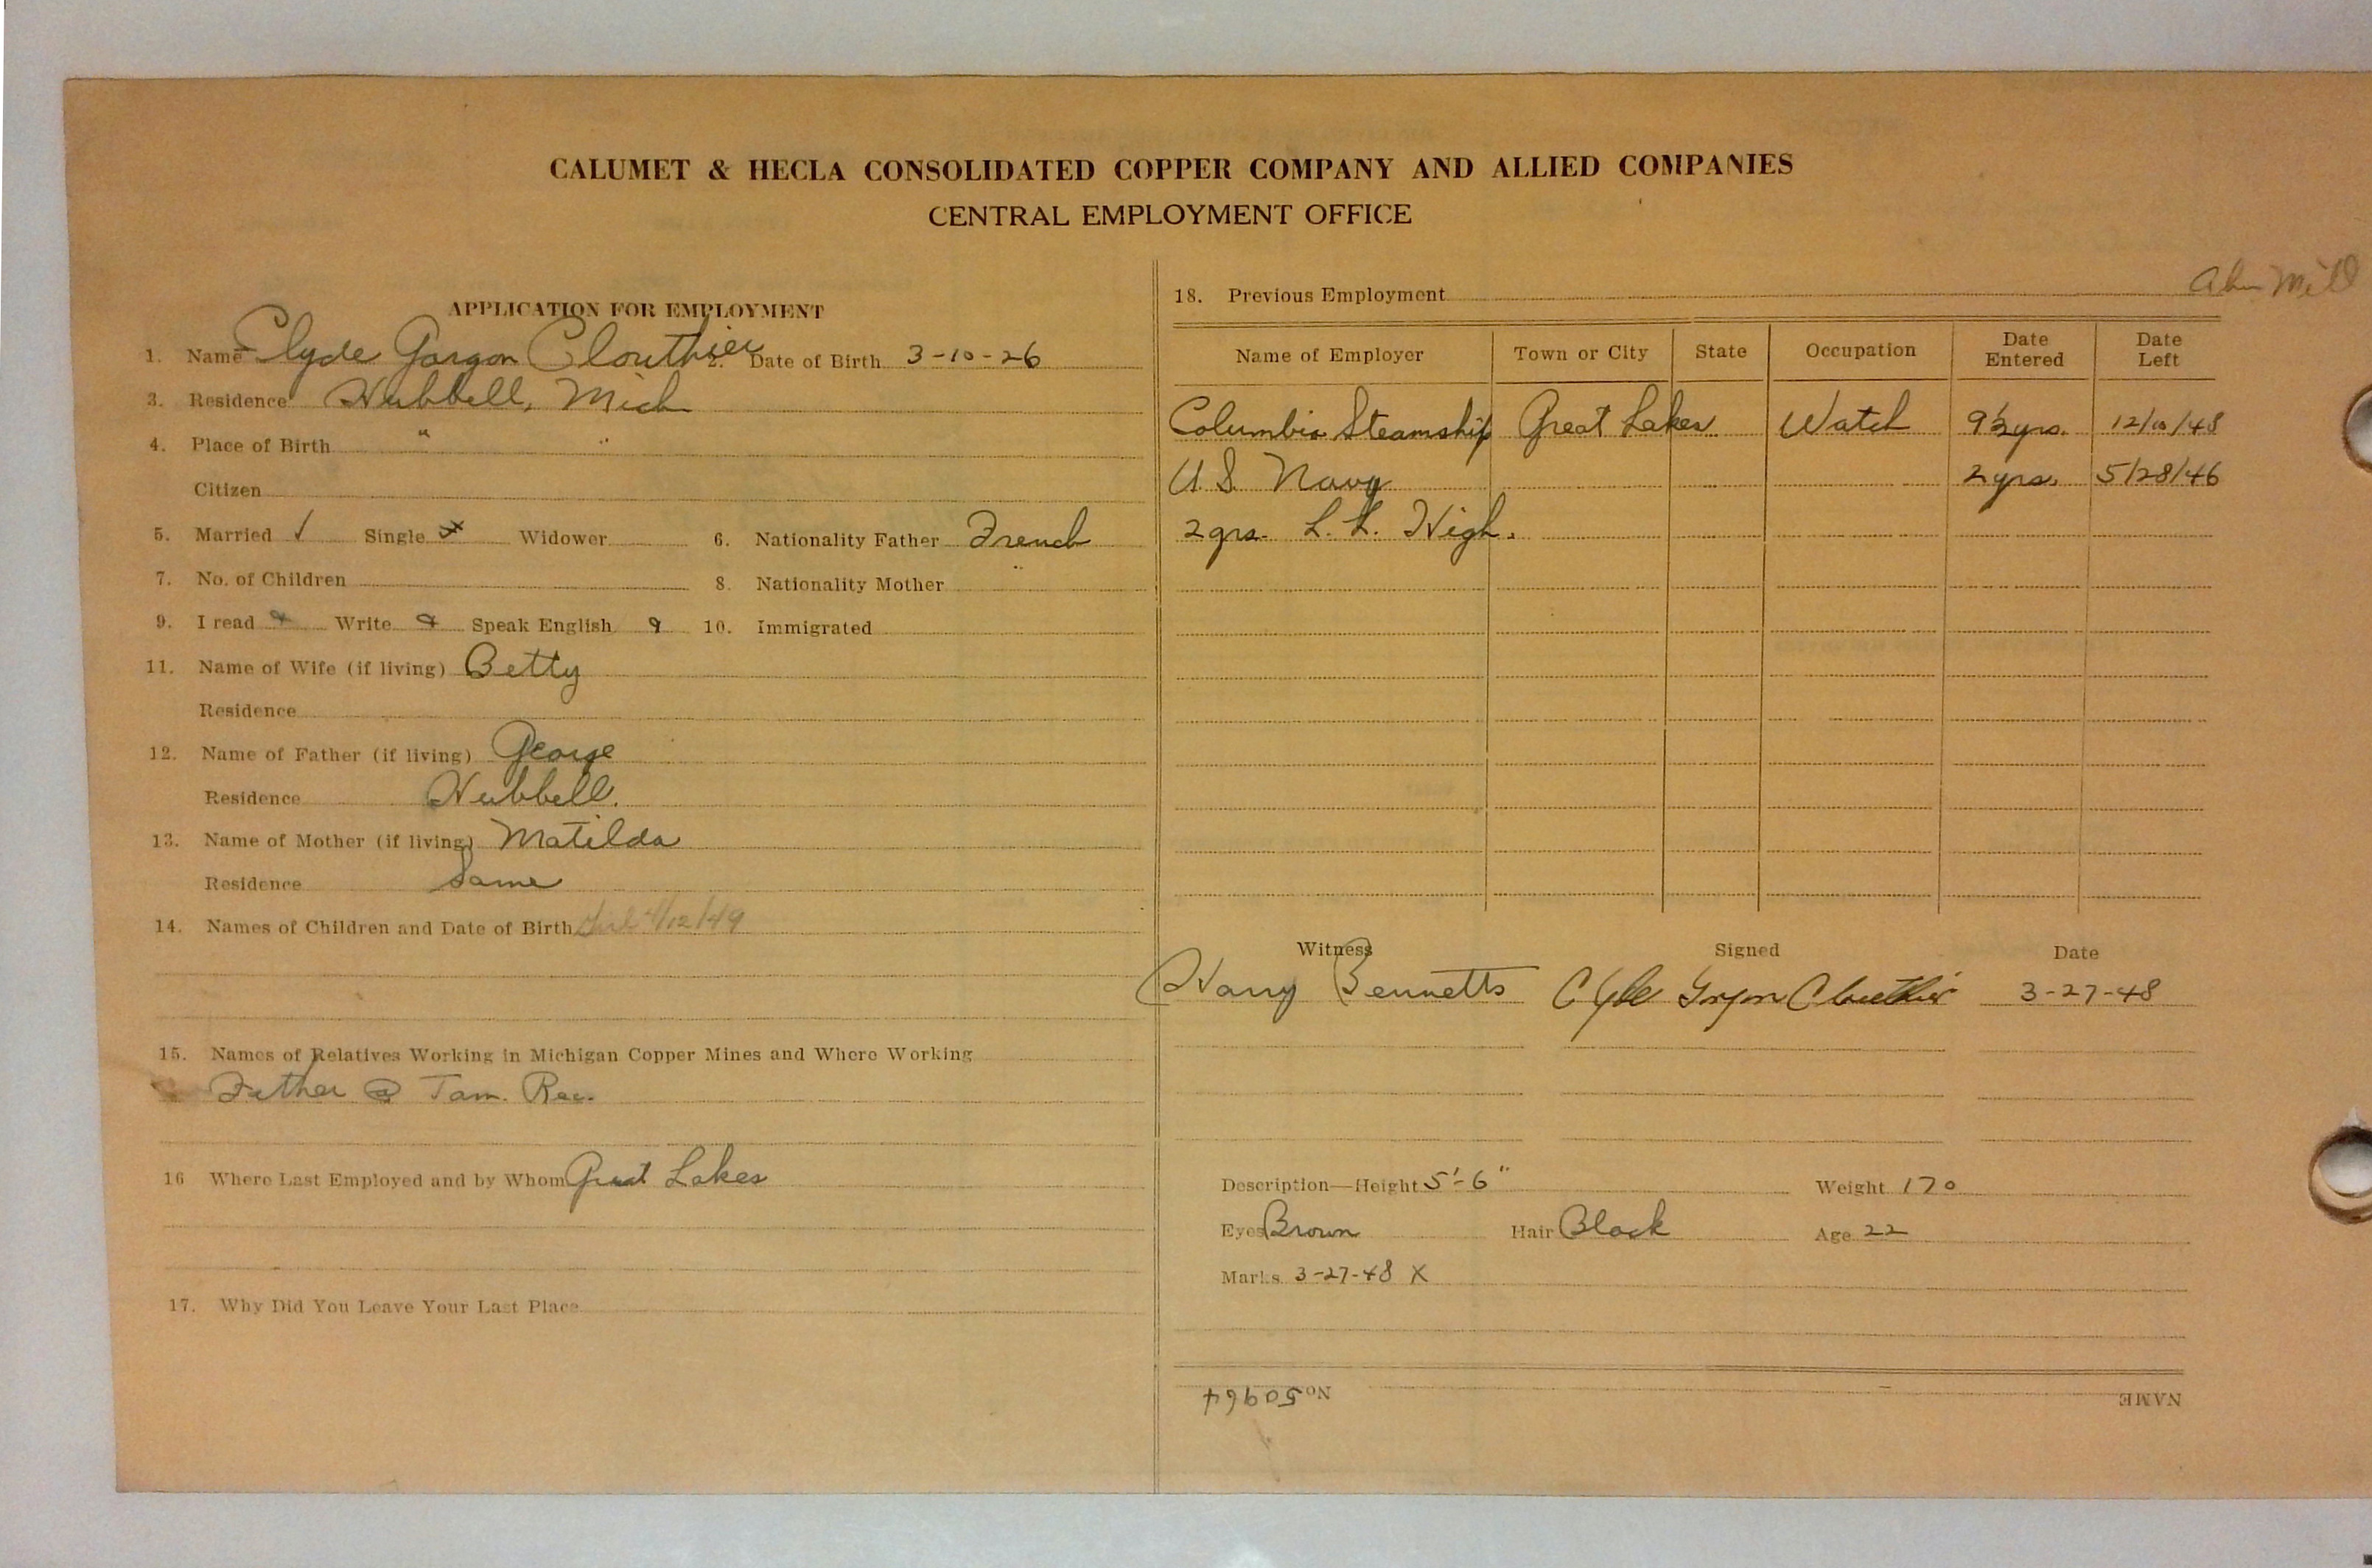 CALUMET & HECLA CONSOLIDATED COPPER COMPANY AND ALLIED COMPANIES
CENTRAL EMPLOYMENT OFFICE
APPLICATION FOR EMPLOYMENT
1. Name Clyde Gorgon Clouthier 2. Date of Birth 3-10-26
3. Residence Hubbell, Mich
4. Place of Birth " "
Citizen
5. Married ✓ Single x Widower 6. Nationality Father French
7. No. of Children 8. Nationality Mother "
9. I read Write Speak English 10. Immigrated
11. Name of Wife (if living) Betty
Residence
12. Name of Father (if living) George
Residence Hubbell.
13. Name of Mother (if living) Matilda
Residence Same
14. Names of Children and Date of Birth 4/12/49
15. Names of Relatives Working in Michigan Copper Mines and Where Working
Father @ Tam. Rec.
16 Where Last Employed and by Whom Great Lakes
17. Why Did You Leave Your Last Place
18. Previous Employment Mill
Name of Employer Town or City State Occupation Date Entered Date Left
Columbia Steamship Great Lakes Watch yrs. 12/10/48
U.S. Navy 2 yrs. 5/28/46
2 yrs. L. L. High.
Witness Signed Date
Harry Bennetts Clyde Gorgon Clouthier 3-27-48
Description—Height 5'-6" Weight 170
Eyes Brown Hair Black Age 22
Marks 3-27-48 X
No 50964 NAME